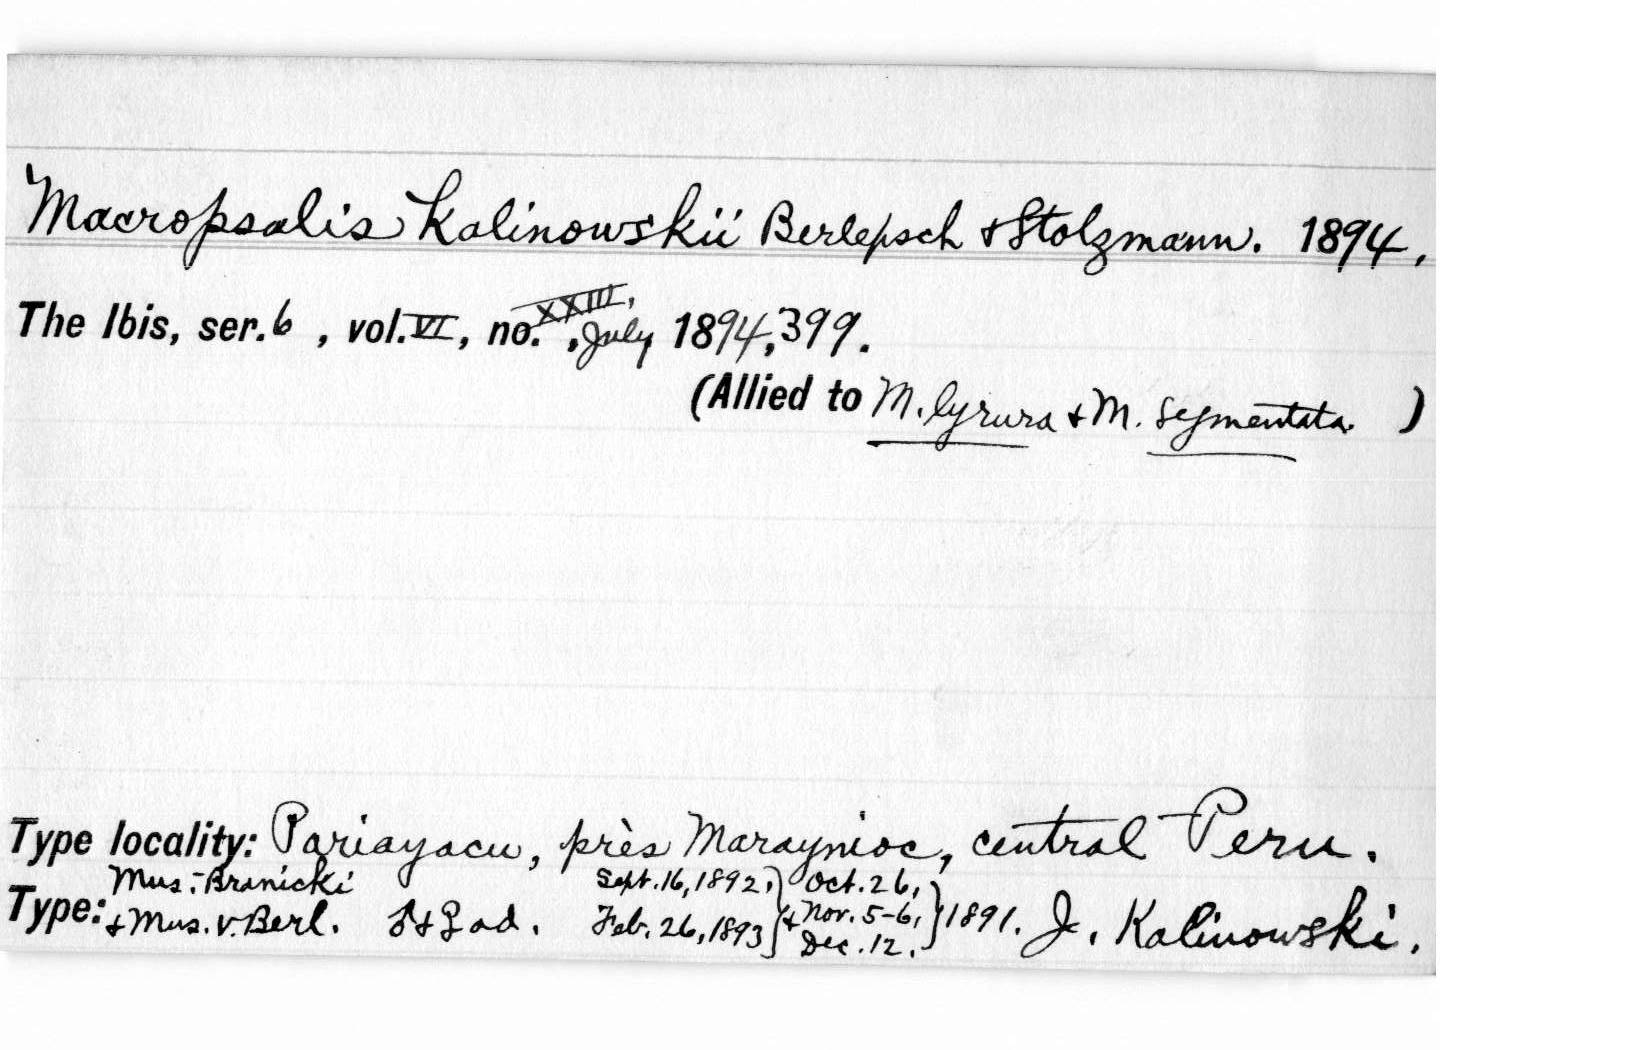 Macropsalis Kalinowskii Berlepsch & Stolzmann. 1894,
The Ibis, ser. 6 , vol. VI, no. XXIII, , July 1894, 399.
(Allied to M. lyrura & M. segmentata. )
Type locality: Pariayacu, près Maraynioc, central Peru.
Mus. Branicki Sept. 16, 1892, Oct. 26,
Type: & Mus. v. Berl. ♂ & ♀ ad. Feb. 26, 1893 } & Nov. 5-6, } 1891. J. Kalinowski.
Dec. 12.